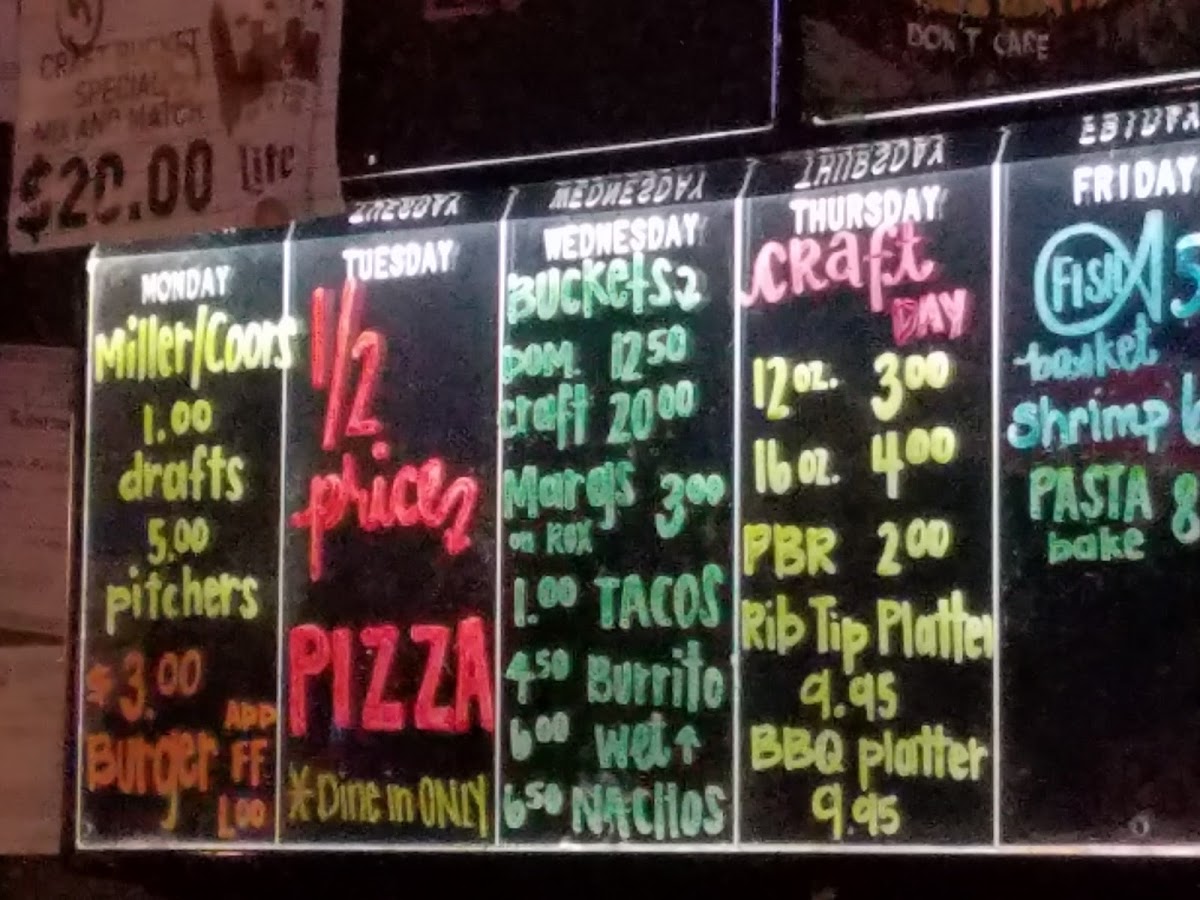 CRAFT BUCKET
SPECIAL
MIX AND MATCH
$20.00 Lite
DON'T CARE
MONDAY
Miller/Coors
1.00
drafts
5.00
pitchers
$3.00
Burger
ADD
FF
1.00
TUESDAY
1/2
price
PIZZA
*Dine in ONLY
WEDNESDAY
BUCKETS
DOM. 12 50
craft 20 00
Margs 3 00
on ROX
1.00 TACOS
4 50 Burrito
6 00 wet ↑
6 50 NACHOS
THURSDAY
CRAft
DAY
12 oz. 3 00
16 oz. 4 00
PBR 2 00
Rib Tip Platter
9.95
BBQ platter
9.95
FRIDAY
FISH
basket
Shrimp
PASTA 8
bake